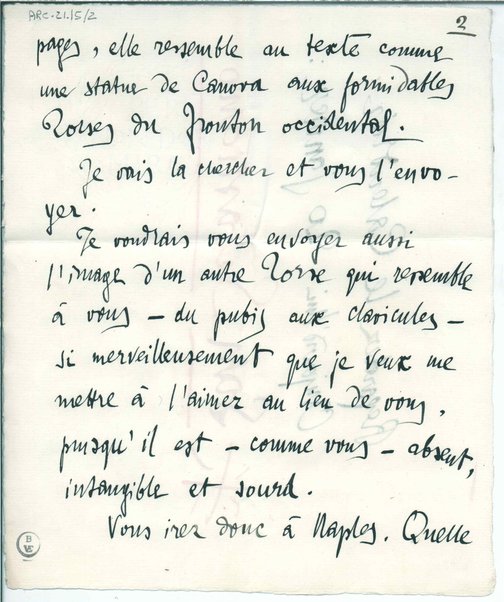 ARC-21.I5/2
2
pages, elle ressemble au texte comme
une statue de Canova aux formidables
Torses du Fronton occidental.
Je vais la chercher et vous l'envo-
yer.
Je voudrais vous envoyer aussi
l'image d'un autre Torse qui ressemble
à vous – du pubis aux clavicules –
si merveilleusement que je veux me
mettre à l'aimer au lieu de vous,
puisqu'il est – comme vous – absent,
intangible et sourd.
Vous irez donc à Naples. Quelle